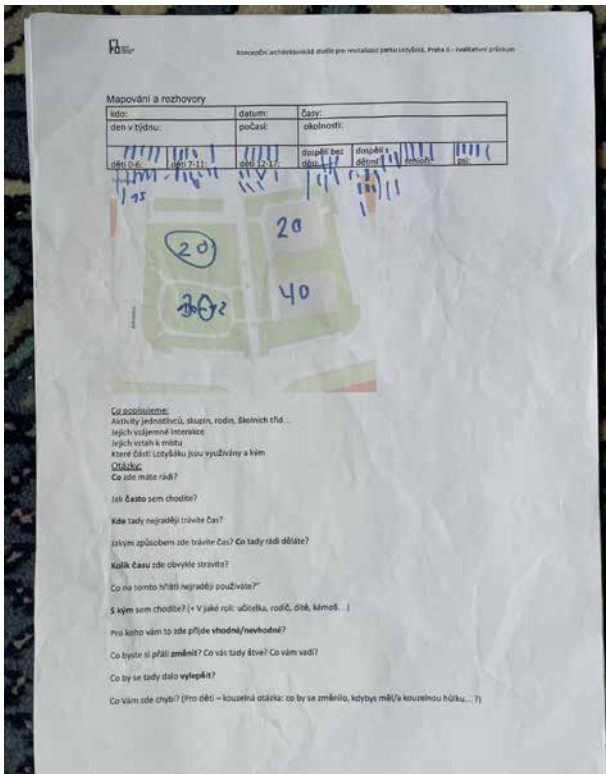 Koncepční architektonická studie pro revitalizaci parku Lotyšská, Praha 6 - kvalitativní průzkum
Mapování a rozhovory
kdo: datum: časy:
den v týdnu: počasí: okolnosti:
děti 0-6: děti 7-11: děti 12-17: dospělí bez dětí: dospělí s dětmi: senioři: psi:
15
20 20
40
Co popisujeme:
Aktivity jednotlivců, skupin, rodin, školních tříd...
Jejich vzájemné interakce
Jejich vztah k místu
Které části Lotyšáku jsou využívány a kým
Otázky:
Co zde máte rádi?
Jak často sem chodíte?
Kde tady nejraději trávíte čas?
Jakým způsobem zde trávíte čas? Co tady rádi děláte?
Kolik času zde obvykle strávíte?
Co na tomto hřišti nejraději používáte?"
S kým sem chodíte? (+ V jaké roli: učitelka, rodič, dítě, kámoš...)
Pro koho vám to zde přijde vhodné/nevhodné?
Co byste si přáli změnit? Co vás tady štve? Co vám vadí?
Co by se tady dalo vylepšit?
Co Vám zde chybí? (Pro děti – kouzelná otázka: co by se změnilo, kdybys měl/a kouzelnou hůlku... ?)